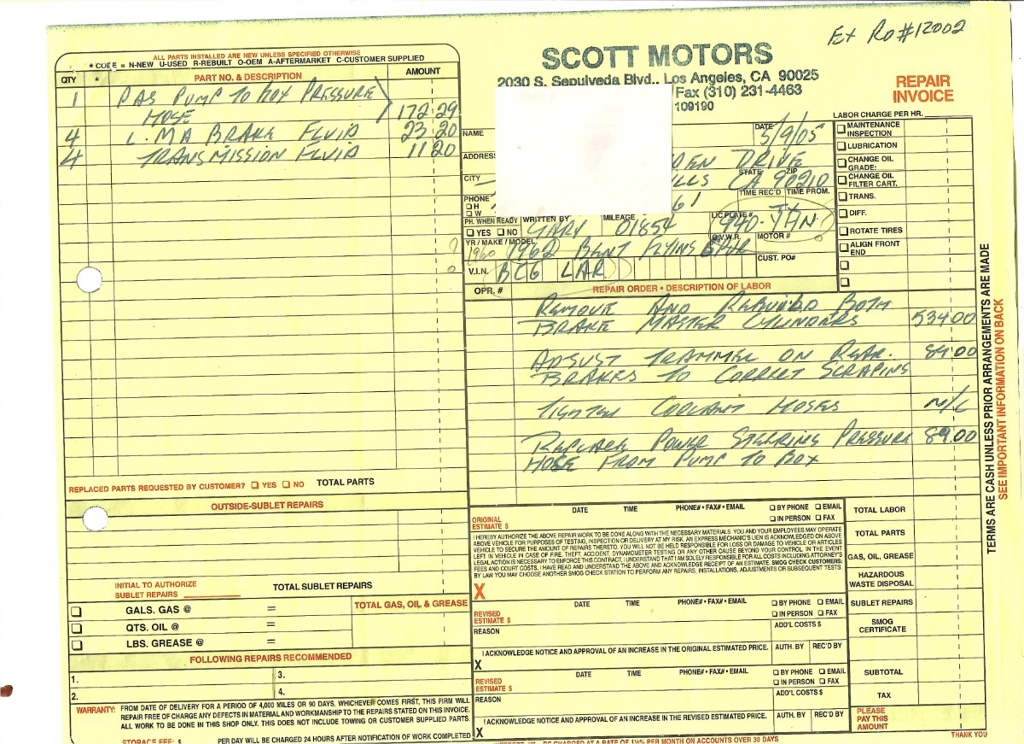 Ex Ro #12002
SCOTT MOTORS
2030 S. Sepulveda Blvd., Los Angeles, CA 90025
Fax (310) 231-4463
109190
REPAIR INVOICE
ALL PARTS INSTALLED ARE NEW UNLESS SPECIFIED OTHERWISE
* CODE = N-NEW U-USED R-REBUILT O-OEM A-AFTERMARKET C-CUSTOMER SUPPLIED
QTY * PART NO. & DESCRIPTION AMOUNT
1 PAS PUMP TO BOX PRESSURE
HOSE 172 29
4 L.MA BRAKE FLUID 23 20
4 TRANSMISSION FLUID 11 20
REPLACED PARTS REQUESTED BY CUSTOMER? YES NO TOTAL PARTS
OUTSIDE-SUBLET REPAIRS
INITIAL TO AUTHORIZE
SUBLET REPAIRS
TOTAL SUBLET REPAIRS
GALS. GAS @ =
QTS. OIL @ =
LBS. GREASE @ =
TOTAL GAS, OIL & GREASE
FOLLOWING REPAIRS RECOMMENDED
1. 3.
2. 4.
WARRANTY: FROM DATE OF DELIVERY FOR A PERIOD OF 4,000 MILES OR 90 DAYS. WHICHEVER COMES FIRST, THIS FIRM WILL
REPAIR FREE OF CHARGE ANY DEFECTS IN MATERIAL AND WORKMANSHIP TO THE REPAIRS STATED ON THIS INVOICE.
ALL WORK TO BE DONE IN THIS SHOP ONLY. THIS DOES NOT INCLUDE TOWING OR CUSTOMER SUPPLIED PARTS.
STORAGE FEE: $ PER DAY WILL BE CHARGED 24 HOURS AFTER NOTIFICATION OF WORK COMPLETED
NAME DATE 5/9/05
ADDRESS DEN DRIVE
CITY LLS STATE CA ZIP 90210
PHONE H W 61 TIME REC'D TIME PROM.
PH. WHEN READY YES NO WRITTEN BY GARY MILEAGE 01854 LIC. PLATE #
YR / MAKE / MODEL 1960 1962 BENT FLYING SPUR G.V.W.R. MOTOR #
V.I.N. BC6 LAR CUST. PO#
LABOR CHARGE PER HR.
MAINTENANCE INSPECTION
LUBRICATION
CHANGE OIL GRADE:
CHANGE OIL FILTER CART.
TRANS.
DIFF.
ROTATE TIRES
ALIGN FRONT END
OPR. # REPAIR ORDER • DESCRIPTION OF LABOR
REMOVE AND REBUILD BOTH
BRAKE MASTER CYLINDERS 534 00
ADJUST TRAMMEL ON REAR. 89.00
BRAKES TO CORRECT SCRAPING
TIGHTEN COOLANT HOSES N/C
REPLACE POWER STEERING PRESSURE 89.00
HOSE FROM PUMP TO BOX
ORIGINAL ESTIMATE $ DATE TIME PHONE# • FAX# • EMAIL BY PHONE EMAIL IN PERSON FAX
I HEREBY AUTHORIZE THE ABOVE REPAIR WORK TO BE DONE ALONG WITH THE NECESSARY MATERIALS. YOU AND YOUR EMPLOYEES MAY OPERATE
ABOVE VEHICLE FOR PURPOSES OF TESTING, INSPECTION OR DELIVERY AT MY RISK. AN EXPRESS MECHANIC'S LIEN IS ACKNOWLEDGED ON ABOVE
VEHICLE TO SECURE THE AMOUNT OF REPAIRS THERETO. YOU WILL NOT BE HELD RESPONSIBLE FOR LOSS OR DAMAGE TO VEHICLE OR ARTICLES
LEFT IN VEHICLE IN CASE OF FIRE, THEFT, ACCIDENT, DYNAMOMETER TESTING OR ANY OTHER CAUSE BEYOND YOUR CONTROL. IN THE EVENT
LEGAL ACTION IS NECESSARY TO ENFORCE THIS CONTRACT, I UNDERSTAND THAT I AM SOLELY RESPONSIBLE FOR ALL COSTS INCLUDING ATTORNEY'S
FEES AND COURT COSTS. I HAVE READ AND UNDERSTAND THE ABOVE AND ACKNOWLEDGE RECEIPT OF AN ESTIMATE. SMOG CHECK CUSTOMERS:
BY LAW YOU MAY CHOOSE ANOTHER SMOG CHECK STATION TO PERFORM ANY REPAIRS, INSTALLATIONS, ADJUSTMENTS OR SUBSEQUENT TESTS
X
REVISED ESTIMATE $ DATE TIME PHONE# • FAX# • EMAIL BY PHONE EMAIL IN PERSON FAX
REASON ADD'L COSTS $
I ACKNOWLEDGE NOTICE AND APPROVAL OF AN INCREASE IN THE ORIGINAL ESTIMATED PRICE. AUTH. BY REC'D BY
X
REVISED ESTIMATE $ DATE TIME PHONE# • FAX# • EMAIL BY PHONE EMAIL IN PERSON FAX
REASON ADD'L COSTS $
I ACKNOWLEDGE NOTICE AND APPROVAL OF AN INCREASE IN THE REVISED ESTIMATED PRICE. AUTH. BY REC'D BY
X
TOTAL LABOR
TOTAL PARTS
GAS, OIL, GREASE
HAZARDOUS WASTE DISPOSAL
SUBLET REPAIRS
SMOG CERTIFICATE
SUBTOTAL
TAX
PLEASE PAY THIS AMOUNT
THANK YOU
TERMS ARE CASH UNLESS PRIOR ARRANGEMENTS ARE MADE
SEE IMPORTANT INFORMATION ON BACK